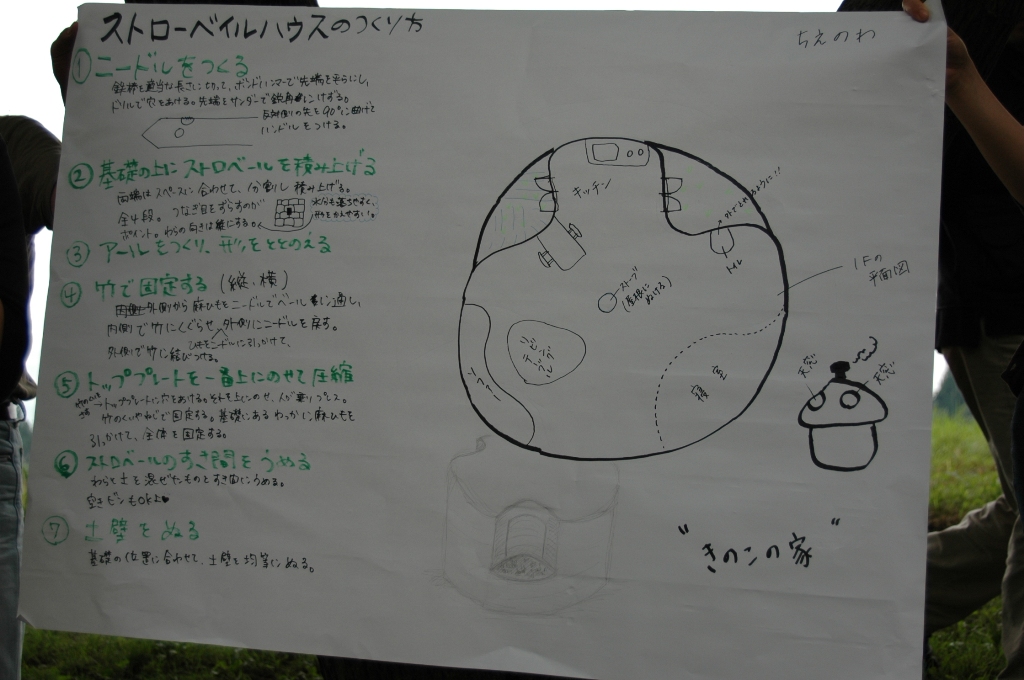 ストローベイルハウスのつくり方
ちえのわ
① ニードルをつくる
鉄棒を適当な長さに切って、ボンドハンマーで先端を平らにし、
ドリルで穴をあける。先端をサンダーで鋭角にけずる。
反対側の先を90°に曲げて
ハンドルをつける。
② 基礎の上にストロベールを積み上げる
両端はスペースに合わせて、1/分割し 積み上げる。
全4段。つなぎ目をずらすのが
ポイント。わらの向きは縦にする。
水分も落ちやすく、
形をかえやすい。
③ アールをつくり、形をととのえる
④ 竹で固定する (縦、横)
外側から麻ひもをニードルでベールに通し、
内側で竹にくぐらせ、外側にニードルを戻す。
ひもをニードルに引っかけて、
外側で竹に結びつける。
⑤ トッププレートを一番上にのせて圧縮
→トッププレートに穴をあける。それを上にのせ、人が乗りプレス。
竹のくいやねじで固定する。基礎にあるわっかに麻ひもを
引っかけて、全体を固定する。
⑥ ストロベールのすき間をうめる
わらと土を混ぜたものをすき間にうめる。
空きビンもOK♥
⑦ 土壁をぬる
基礎の位置に合わせて、土壁を均等にぬる。
キッチン
トイレ
ストーブ
(屋根に
ぬける)
リビング
テーブル
ソファー
寝室
1Fの
平面図
天窓
天窓
"きのこの家"